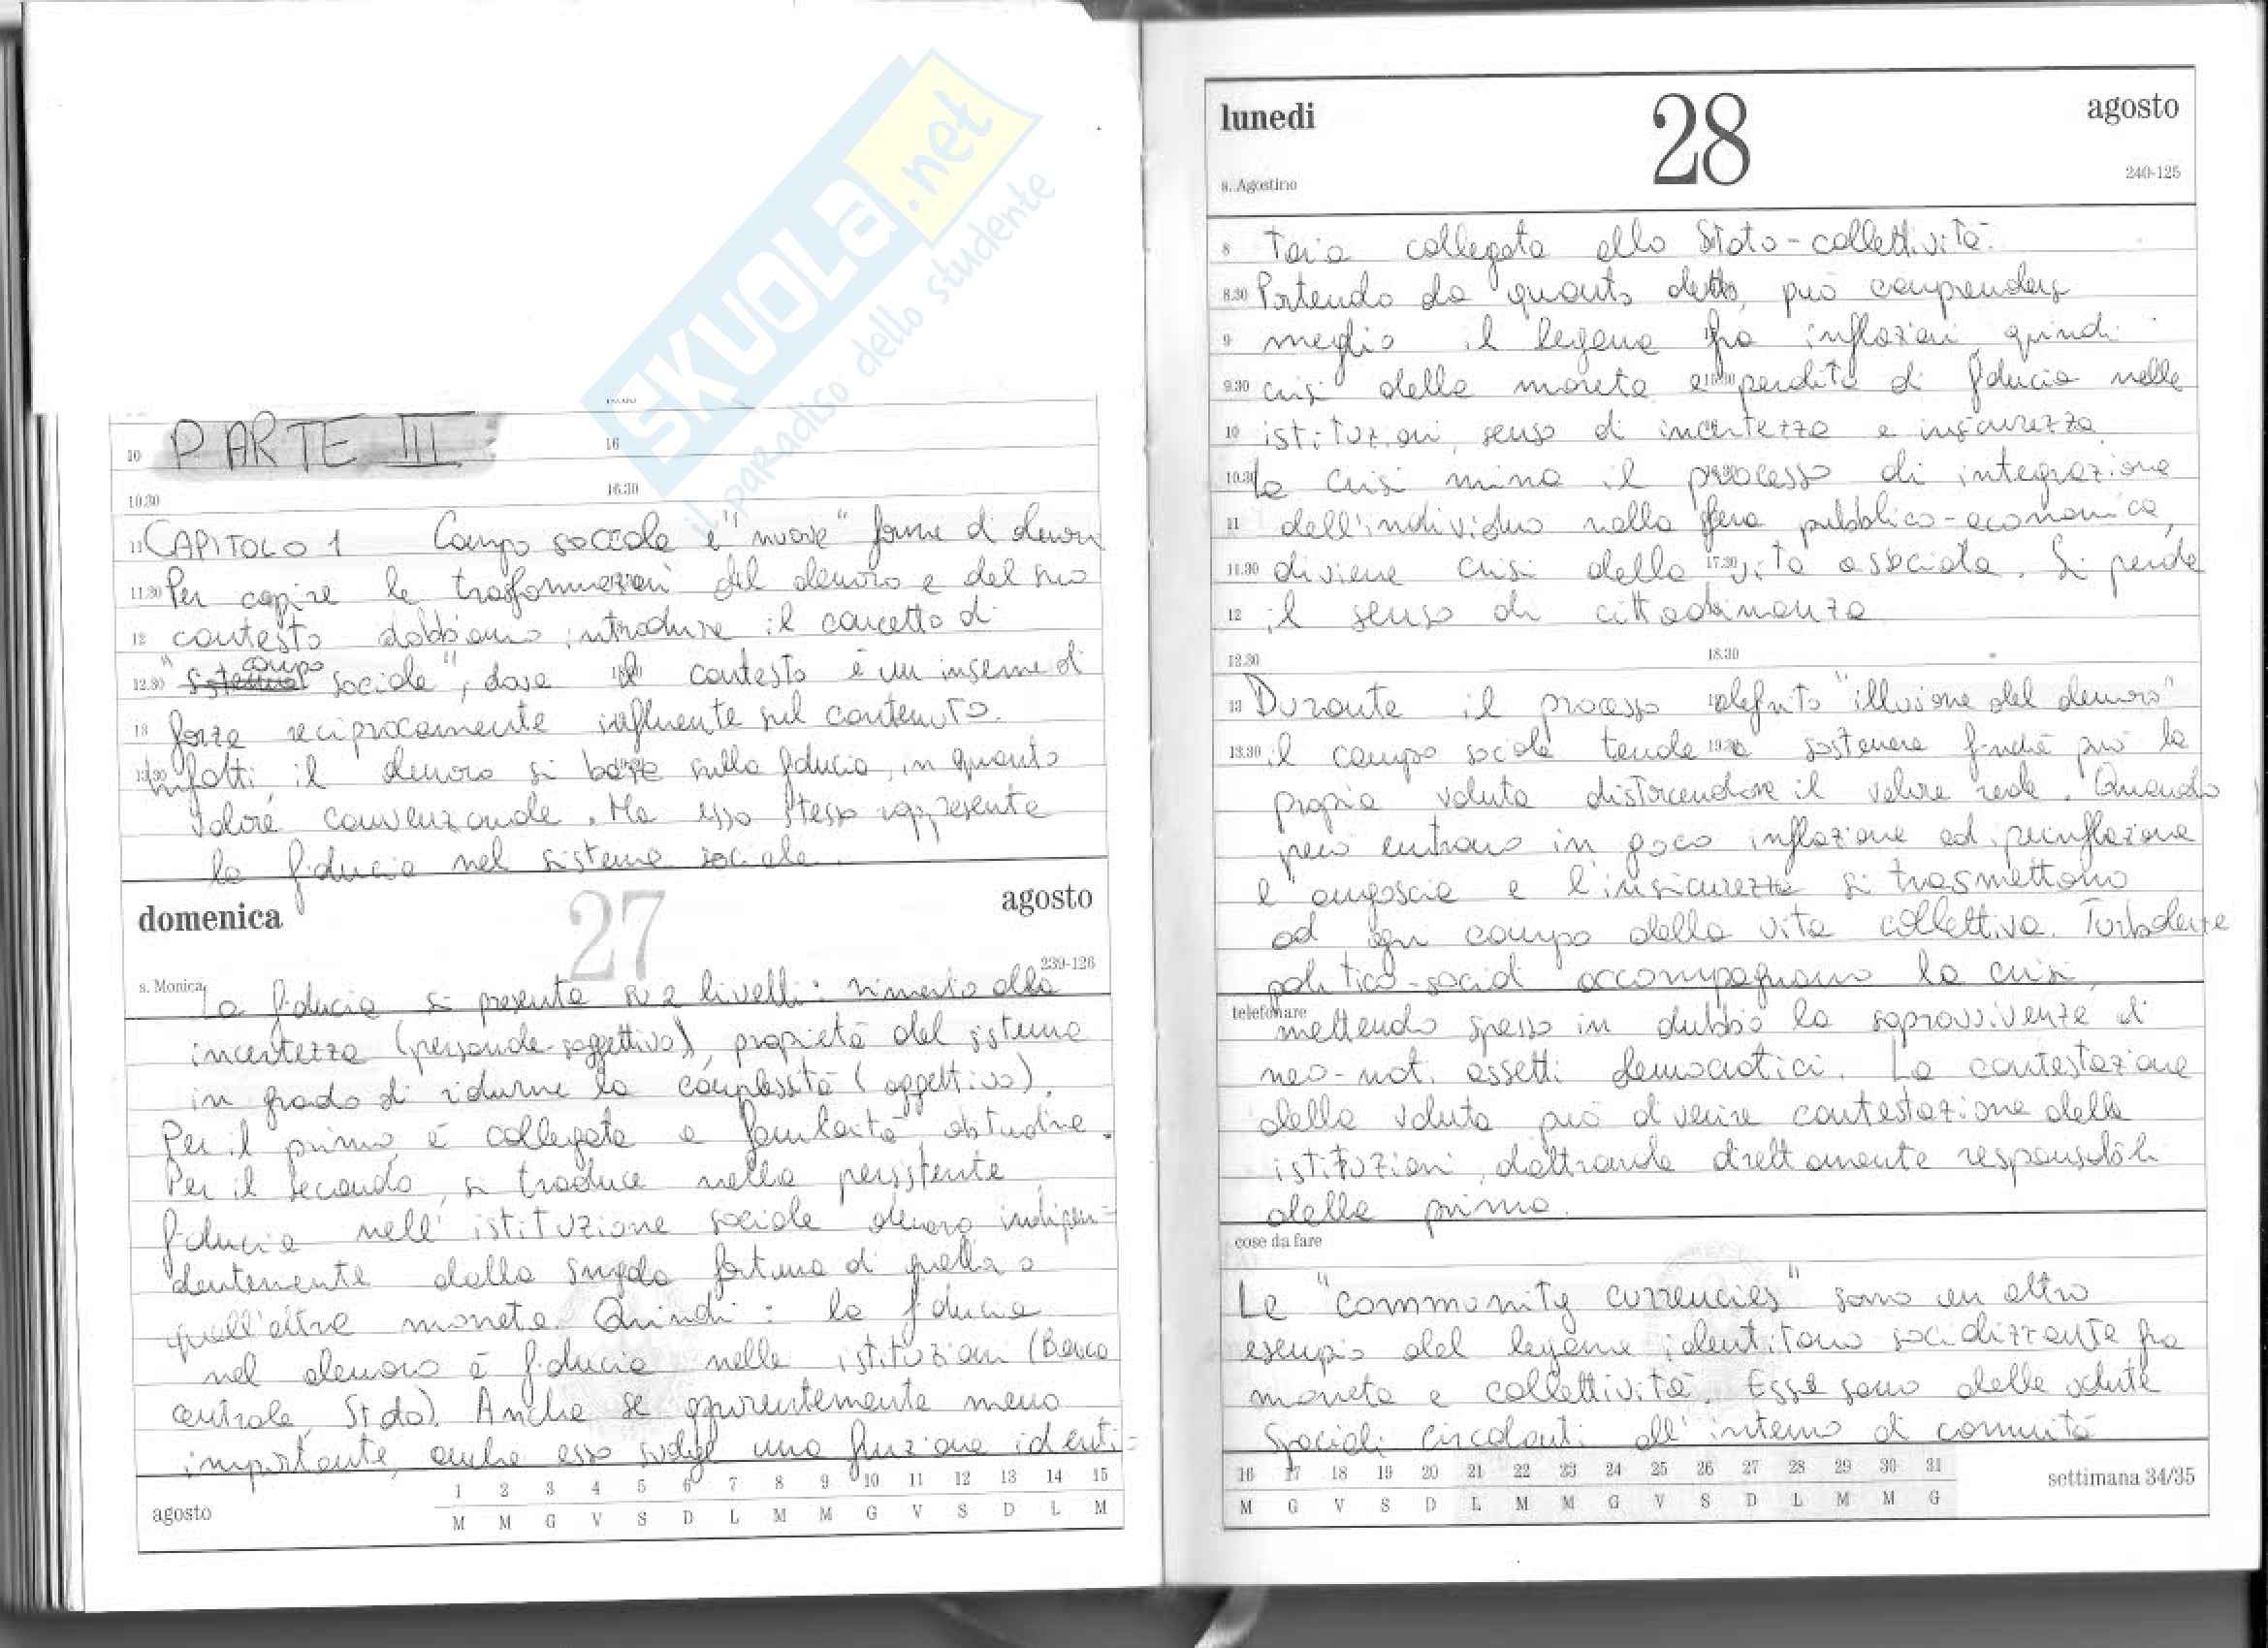 SKUOLA.net
il paradiso dello studente
16
10 PARTE III
10.30 16.30
11 CAPITOLO 1 Campo sociale e "nuove" forme di denaro
11.30 Per capire le trasformazioni del denaro e del suo
12 contesto dobbiamo introdurre il concetto di
12.30 "campo sociale", dove il contesto è un insieme di
13 forze reciprocamente influente sul contenuto.
13.30 Infatti il denaro si basa sulla fiducia, in quanto
valore convenzionale. Ma esso stesso rappresenta
la fiducia nel sistema sociale.
domenica 27 agosto
s. Monica 239-126
La fiducia si presenta su 2 livelli: rimedio alla
incertezza (personale-soggettivo), proprietà del sistema
in grado di ridurne la complessità (oggettivo).
Per il primo, è collegata a familiarità, abitudine.
Per il secondo, si traduce nella persistente
fiducia nell'istituzione sociale denaro indipen=
dentemente dalla singola fortuna di quella o
quell'altra moneta. Quindi: la fiducia
nel denaro è fiducia nelle istituzioni (Banca
centrale, Stato). Anche se apparentemente meno
importante, anche esso svolge una funzione identi=
agosto 1 2 3 4 5 6 7 8 9 10 11 12 13 14 15
M M G V S D L M M G V S D L M
lunedi 28 agosto
s. Agostino 240-125
8 taria collegata allo Stato-collettività.
8.30 Partendo da quanto detto, può comprendersi
9 meglio il legame fra inflazioni, quindi
9.30 crisi della moneta e perdita di fiducia nelle
10 istituzioni, senso di incertezza e insicurezza.
10.30 La crisi mina il processo di integrazione
11 dell'individuo nella sfera pubblico-economica,
11.30 diviene crisi della 17.30 vita associata. Si perde
12 il senso di cittadinanza
12.30 18.30
13 Durante il processo definito "illusione del denaro"
13.30 il campo sociale tende a sostenere finché può la
propria valuta distorcendone il valore reale. Quando
però entrano in gioco inflazione ed iperinflazione
l'angoscia e l'insicurezza si trasmettono
ad ogni campo della vita collettiva. Turbolenze
politico-sociali accompagnano la crisi,
telefonare
mettendo spesso in dubbio la sopravvivenza di
neo-nati assetti democratici. La contestazione
della valuta può divenire contestazione delle
istituzioni, direttamente responsabili
della prima.
cose da fare
Le "community currencies" sono un altro
esempio del legame identitario socializzante fra
moneta e collettività. Esse sono delle valute
speciali circolanti all'interno di comunità
16 17 18 19 20 21 22 23 24 25 26 27 28 29 30 31 settimana 34/35
M G V S D L M M G V S D L M M G